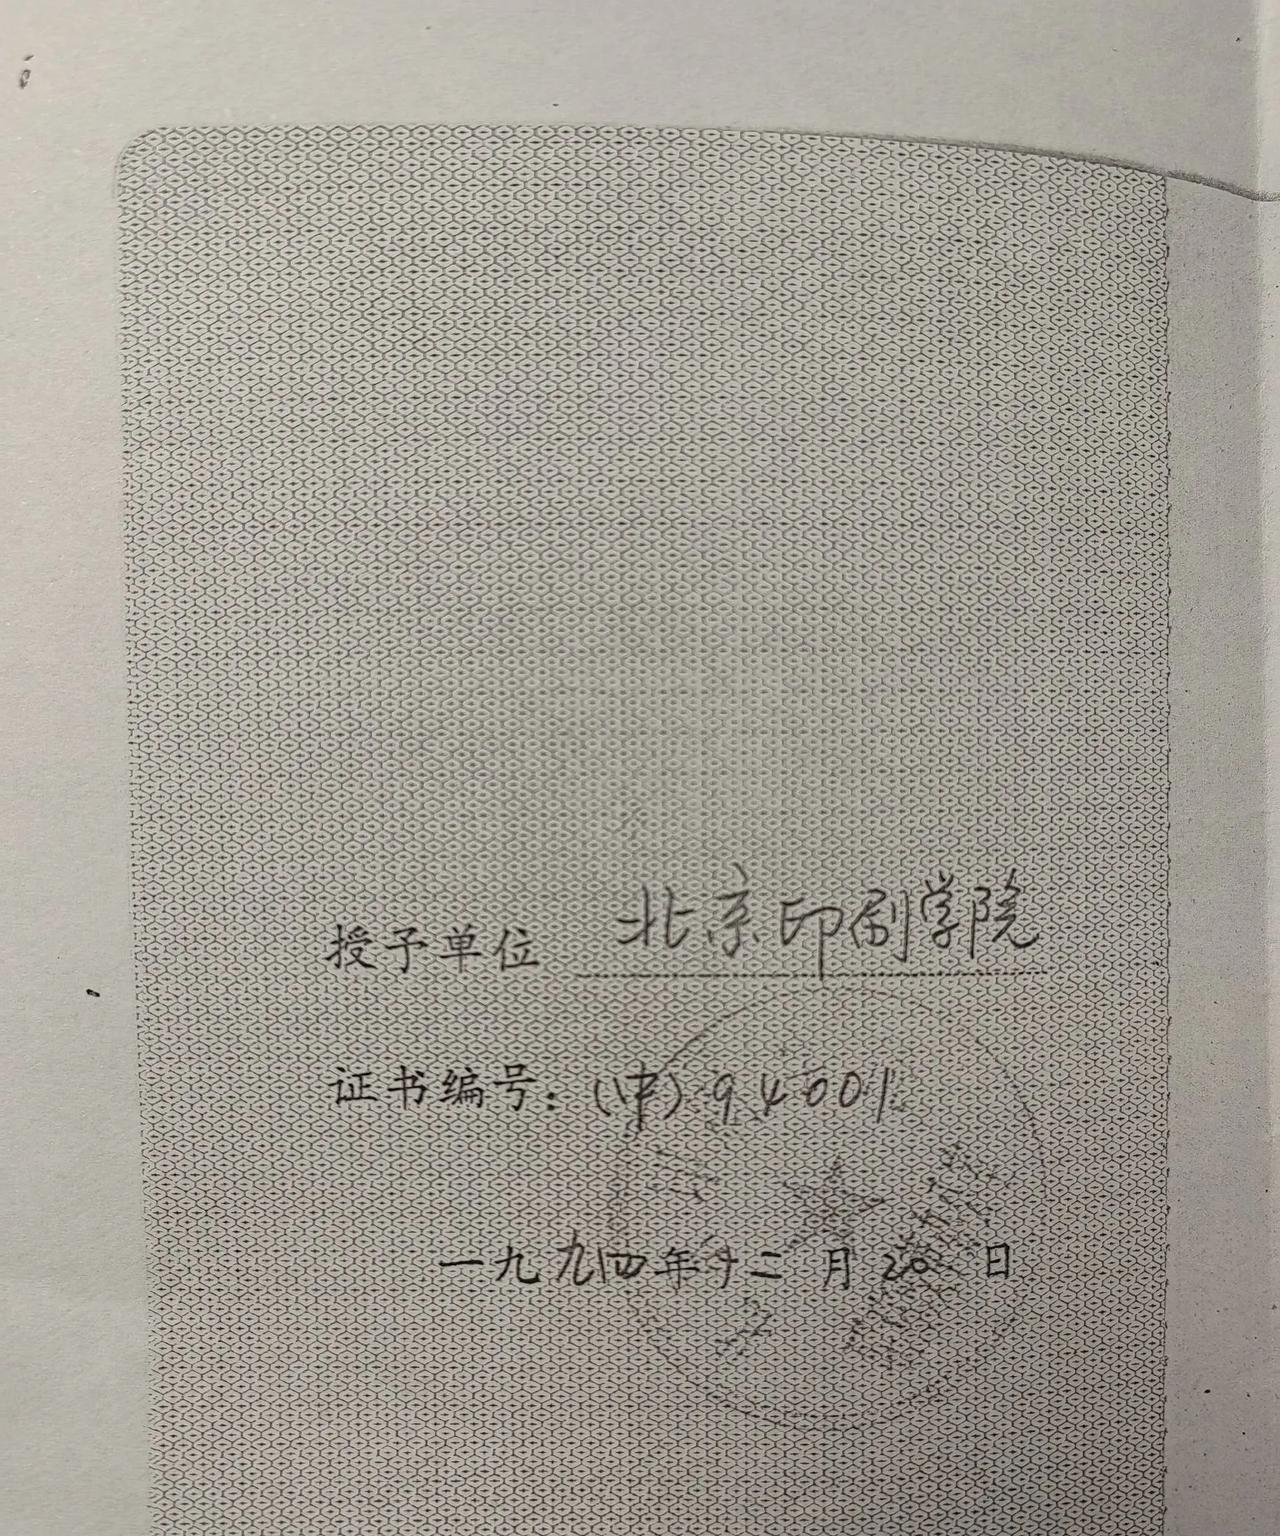 授予单位 北京印刷学院
证书编号:(中)94001
一九九四年十二月20日